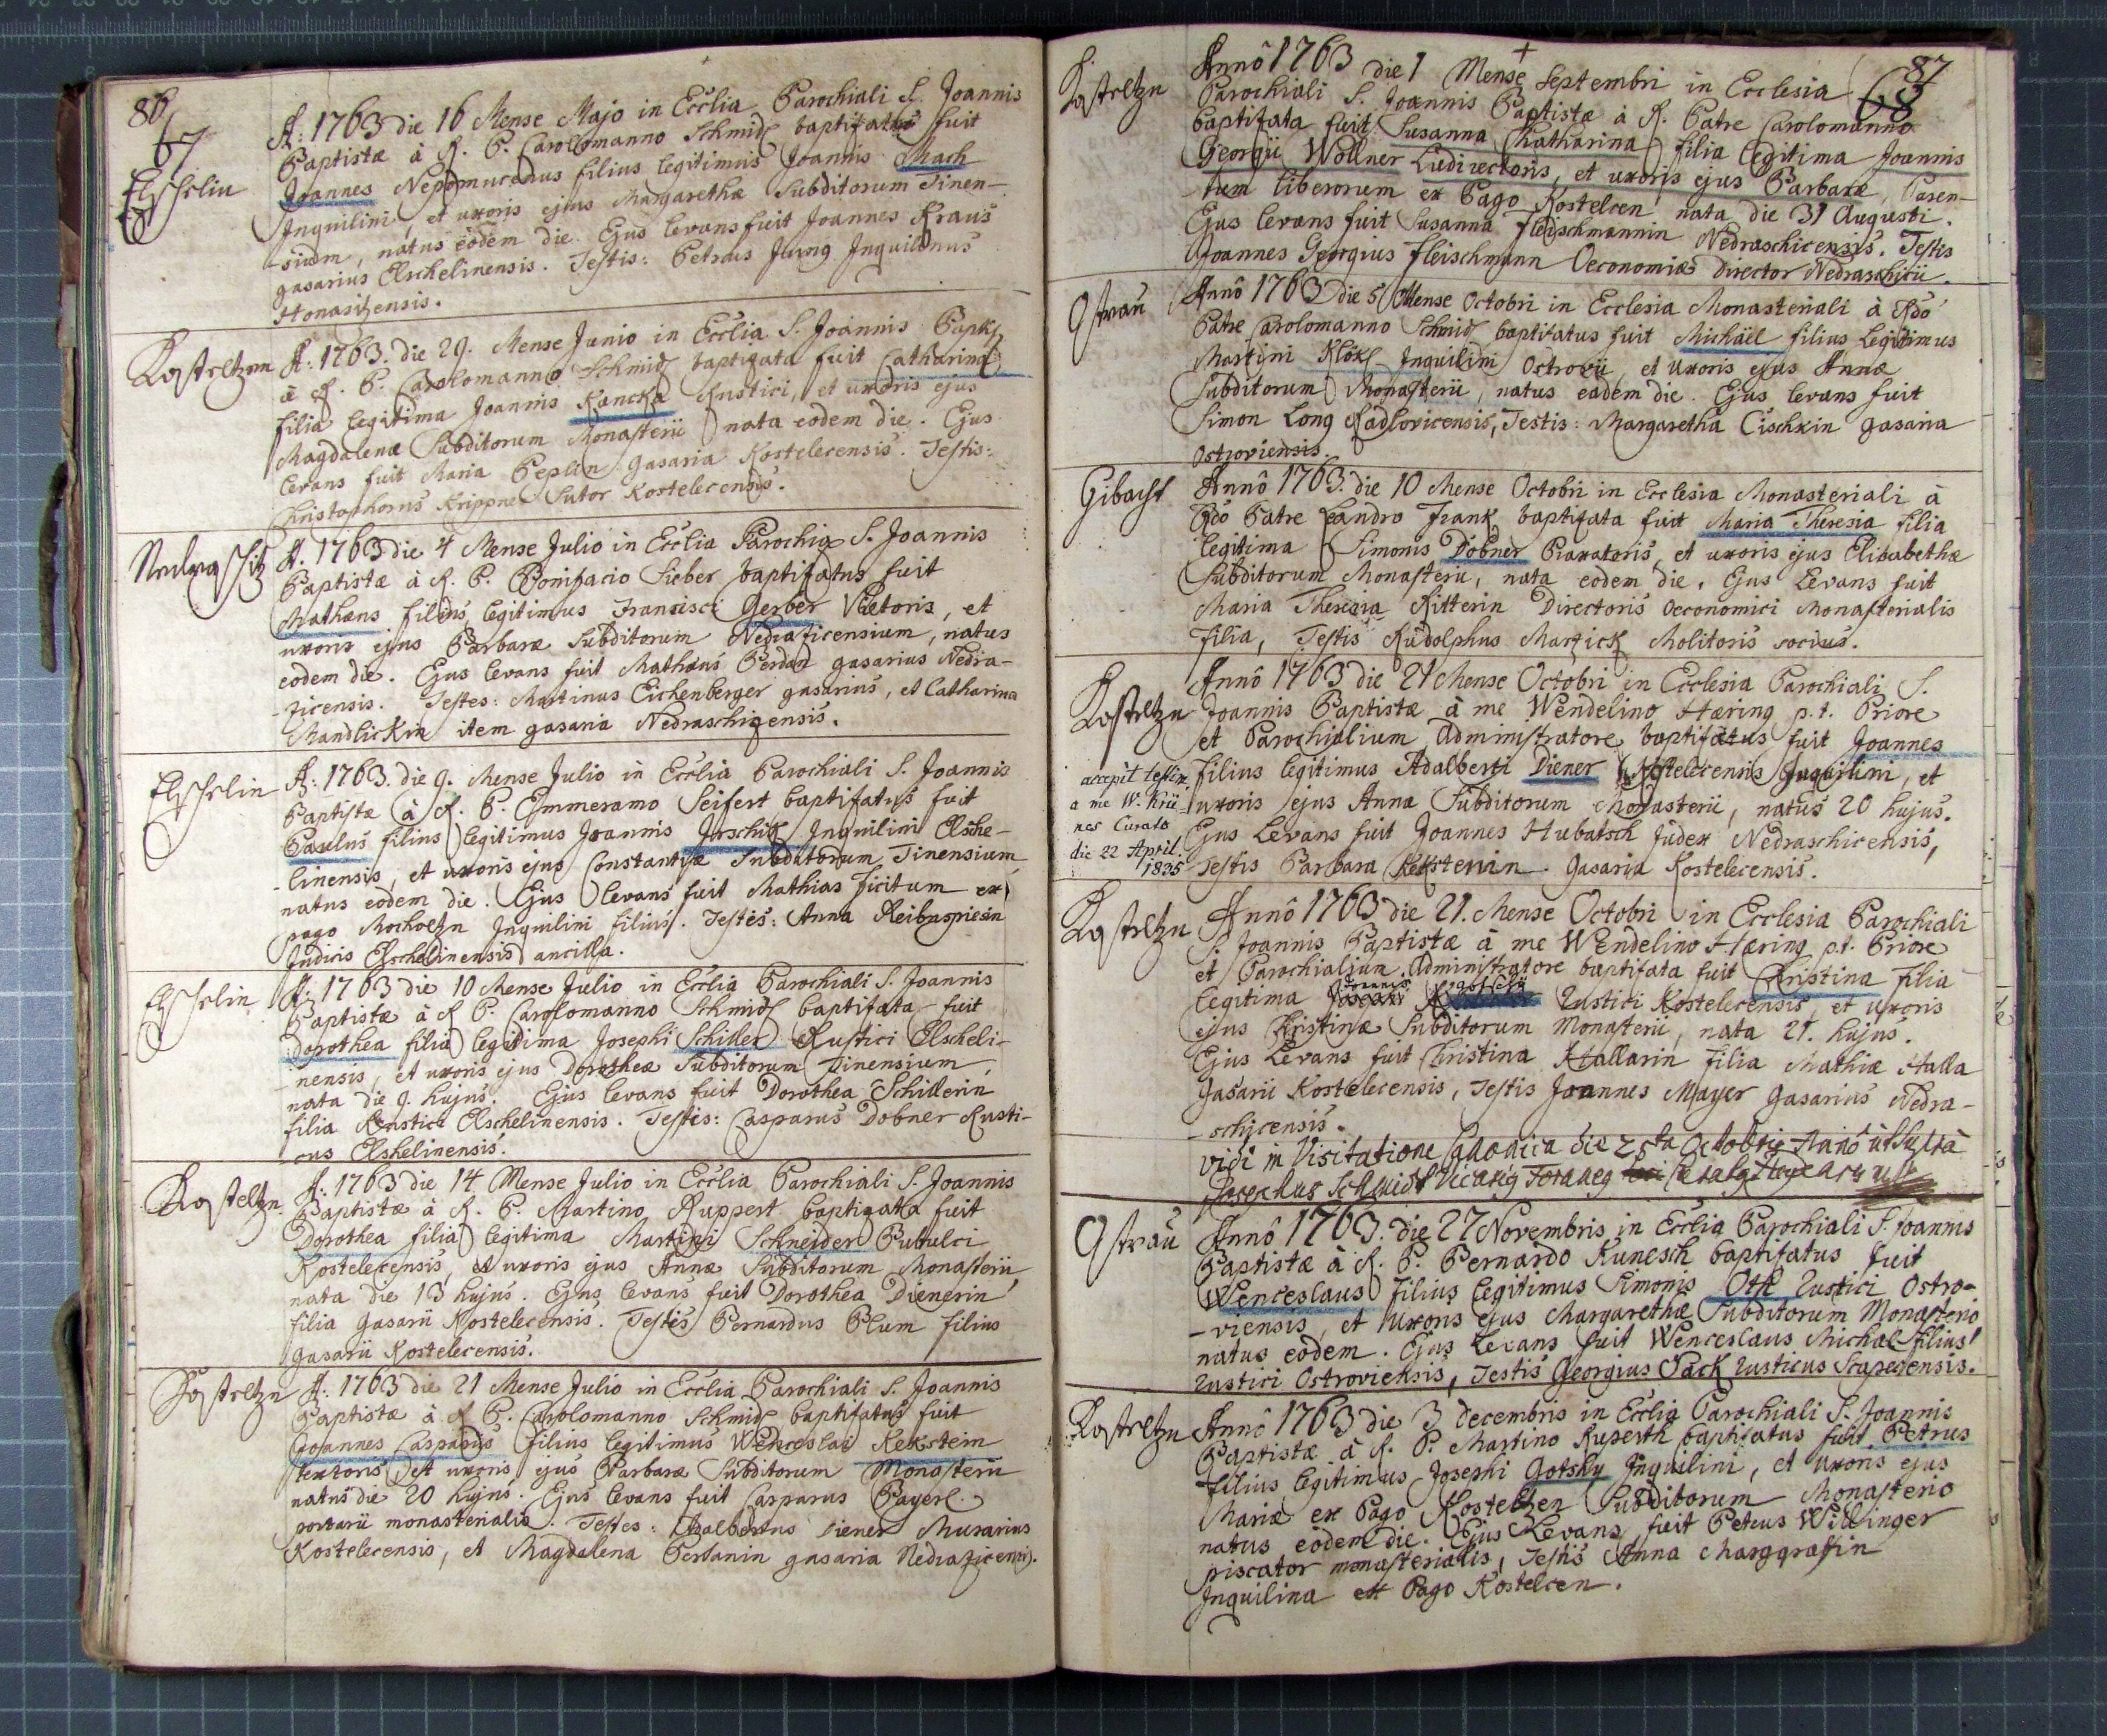 86
67
Elschelin
A: 1763 die 16 Mense Majo in Ecclia Parochiali S. Joannis
Baptistæ à R. P. Carolomanno Schmid baptisatus fuit
Joannes Nepomucenus filius legitimus Joannis Mach
Inquilini, et uxoris ejus Margarethæ Subditorum Tinen-
-sium, natus eodem die. Ejus levans fuit Joannes Kraus
gasarius Elschelinensis. Testis: Petrus Jung Inquilinus
Honasitensis.
Kosteltzen
A: 1763. die 29. Mense Junio in Ecclia S. Joannis Bapt:
à R. P. Carolomanno Schmid baptisata fuit Catharina
filia legitima Joannis Kancka Rustici, et uxoris ejus
Magdalenæ Subditorum Monasterii nata eodem die. Ejus
levans fuit Maria Peplin gasaria Kostelecensis. Testis:
Christophorus Krippner Sutor Kostelecensis.
Nedraschitz
A. 1763 die 4 Mense Julio in Ecclia Parochia S. Joannis
Baptistæ à R. P. Bonifacio Sieber baptisatus fuit
Mathæus filius legitimus Francisci Gerber Vietoris, et
uxoris ejus Barbaræ Subditorum Nedrazicensium, natus
eodem die. Ejus levans fuit Mathæus Berdan gasarius Nedra-
-zicensis. Testes: Martinus Eichenberger gasarius, et Catharina
Mandlickin item gasaria Nedraschizensis.
Elschelin
A: 1763. die 9. Mense Julio in Ecclia Parochiali S. Joannis
Baptistæ à R. P. Emmeramo Seifert baptisatus fuit
Paulus filius legitimus Joannis Jirschik Inquilini Elsche-
-linensis, et uxoris ejus Constantiæ Subditorum Tinensium
natus eodem die. Ejus levans fuit Mathias ficitum ex
pago Mocholtzn Inquilini filius. Testes: Anna Reibnspiesin
Judicis Elschelinensis ancilla.
Elschelin
A: 1763 die 10 Mense Julio in Ecclia Parochiali S. Joannis
Baptistæ à R P. Carolomanno Schmid baptisata fuit
Dorothea filia legitima Josephi Schiller Rustici Elscheli-
-nensis, et uxoris ejus Dorotheæ Subditorum Tinensium,
nata die 9. hujus. Ejus levans fuit Dorothea Schillerin
filia Rustici Elschelinensis. Testis: Casparus Dobner Rusti-
-cus Elshelinensis.
Kosteltzn
A: 1763 die 14 Mense Julio in Ecclia Parochiali S. Joannis
Baptistæ à R. P. Martino Ruppert baptisata fuit
Dorothea filia legitima Martini Schneider Bubulci
Kostelecensis, et uxoris ejus Annæ Subditorum Monasterii,
nata die 13 hujus. Ejus levans fuit Dorothea Dienerin
filia gasarii Kostelecensis. Testis Bernardus Blum filius
gasarii Kostelecensis.
Kosteltzn
A: 1763 die 21 Mense Julio in Ecclia Parochiali S. Joannis
Baptistæ à R P. Carolomanno Schmid baptisatus fuit
Joannes Casparus filius legitimus Wenceslai Kekstein
textoris, et uxoris ejus Barbaræ Subditorum Monasterii
natus die 20 hujus. Ejus levans fuit Casparus Bayerl
portarii monasterialis. Testes: Adalbertus Diener Murarius
Kostelecensis, et Magdalena Berdanin gasaria Nedrazicensis.
87
68
Kosteltzn
Annô 1763 die 1 Mense Septembri in Ecclesia
Parochiali S. Joannis Baptistæ à R. Patre Carolomanno
baptisata fuit Susanna Catharina filia legitima Joannis
Georgii Wollner Ludirectoris, et uxoris ejus Barbaræ, Paren-
-tum liberorum ex Pago Kostelcen, nata die 31 Augusti.
Ejus levans fuit Susanna Fleischmannin Nedraschicensis. Testis
Joannes Georgius Fleischmann Oeconomiæ Director Nedraschicii.
Ostrau
Annô 1763 die 5 Mense Octobri in Ecclesia Monasteriali à Rdo
Patre Carolomanno Schmid baptisatus fuit Michäel filius Legitimus
Martini Klök Inquilini Ostrovii, et uxoris ejus Annæ
Subditorum Monasterii, natus eadem die. Ejus levans fuit
Simon Long Radlovicensis, Testis: Margaretha Cischkin gasaria
Ostroviensis.
Gibacht
Annô 1763. die 10 Mense Octobri in Ecclesia Monasteriali à
Rdo Patre Leandro Frank baptisata fuit Maria Theresia filia
legitima Simonis Dobner Braxatoris, et uxoris ejus Elisabethæ
Subditorum Monasterii, nata eodem die. Ejus Levans fuit
Maria Theresia Ritterin Directoris Oeconomici Monasterialis
filia, Testis Rudolphus Martick Molitoris socius.
Kosteltzn
Annô 1763 die 21 Mense Octobri in Ecclesia Parochiali S.
Joannis Baptistæ à me Wendelino Hæring p.t. Priore
et Parochialium administratore baptisatus fuit Joannes
filius legitimus Adalberti Diener Kostelecensis Inquilini, et
uxoris ejus Annæ Subditorum Monasterii, natus 20 hujus.
Ejus Levans fuit Joannes Hubatsch Judex Nedraschicensis,
Testis Barbara Keksteinin Gasaria Kostelecensis.
accepit testim.
a me W. Krü-
ner Curato
die 22 April.
1835
Kosteltzn
Annô 1763 die 21. Mense Octobri in Ecclesia Parochiali
S. Joannis Baptistæ à me Wendelino Hæring p.t. Priore
et Parochialium Administratore baptisata fuit Christina filia
legitima Joannis Rustici Kostelecensis, et uxoris
ejus Christinæ Subditorum Monasterii, nata 21. hujus.
Ejus Levans fuit Christina Hallarin filia Mathiæ Halla
Gasarii Kostelecensis, Testis Joannes Mayer Gasarius Nedra-
-schicensis.
vidi in Visitatione Canonica die 25ta Octobris Anno ut supra
Josephus Schmidt Vicarius Foraneus
Ostrau
Annô 1763. die 27 Novembris in Ecclia Parochiali S. Joannis
Baptistæ à R. P. Bernardo Kunesch baptisatus fuit
Wenceslaus filius legitimus Simonis Ott Rustici Ostro-
-viensis, et uxoris ejus Margarethæ Subditorum Monasterio
natus eodem. Ejus Levans fuit Wenceslaus Michal filius
Rustici Ostroviensis, Testis Georgius Sack Rusticus Scapecensis.
Kosteltzn
Annô 1763 die 3 decembris in Ecclia Parochiali S. Joannis
Baptistæ à R. P. Martino Ruperth baptisatus fuit Petrus
filius legitimus Josephi Gotshy Inquilini, et uxoris ejus
Mariæ ex Pago Kosteltzen Subditorum Monasterio
natus eodem die. Ejus Levans fuit Petrus Willinger
piscator monasterialis, Testis Anna Marggrafin
Inquilina ex Pago Kostelcen.